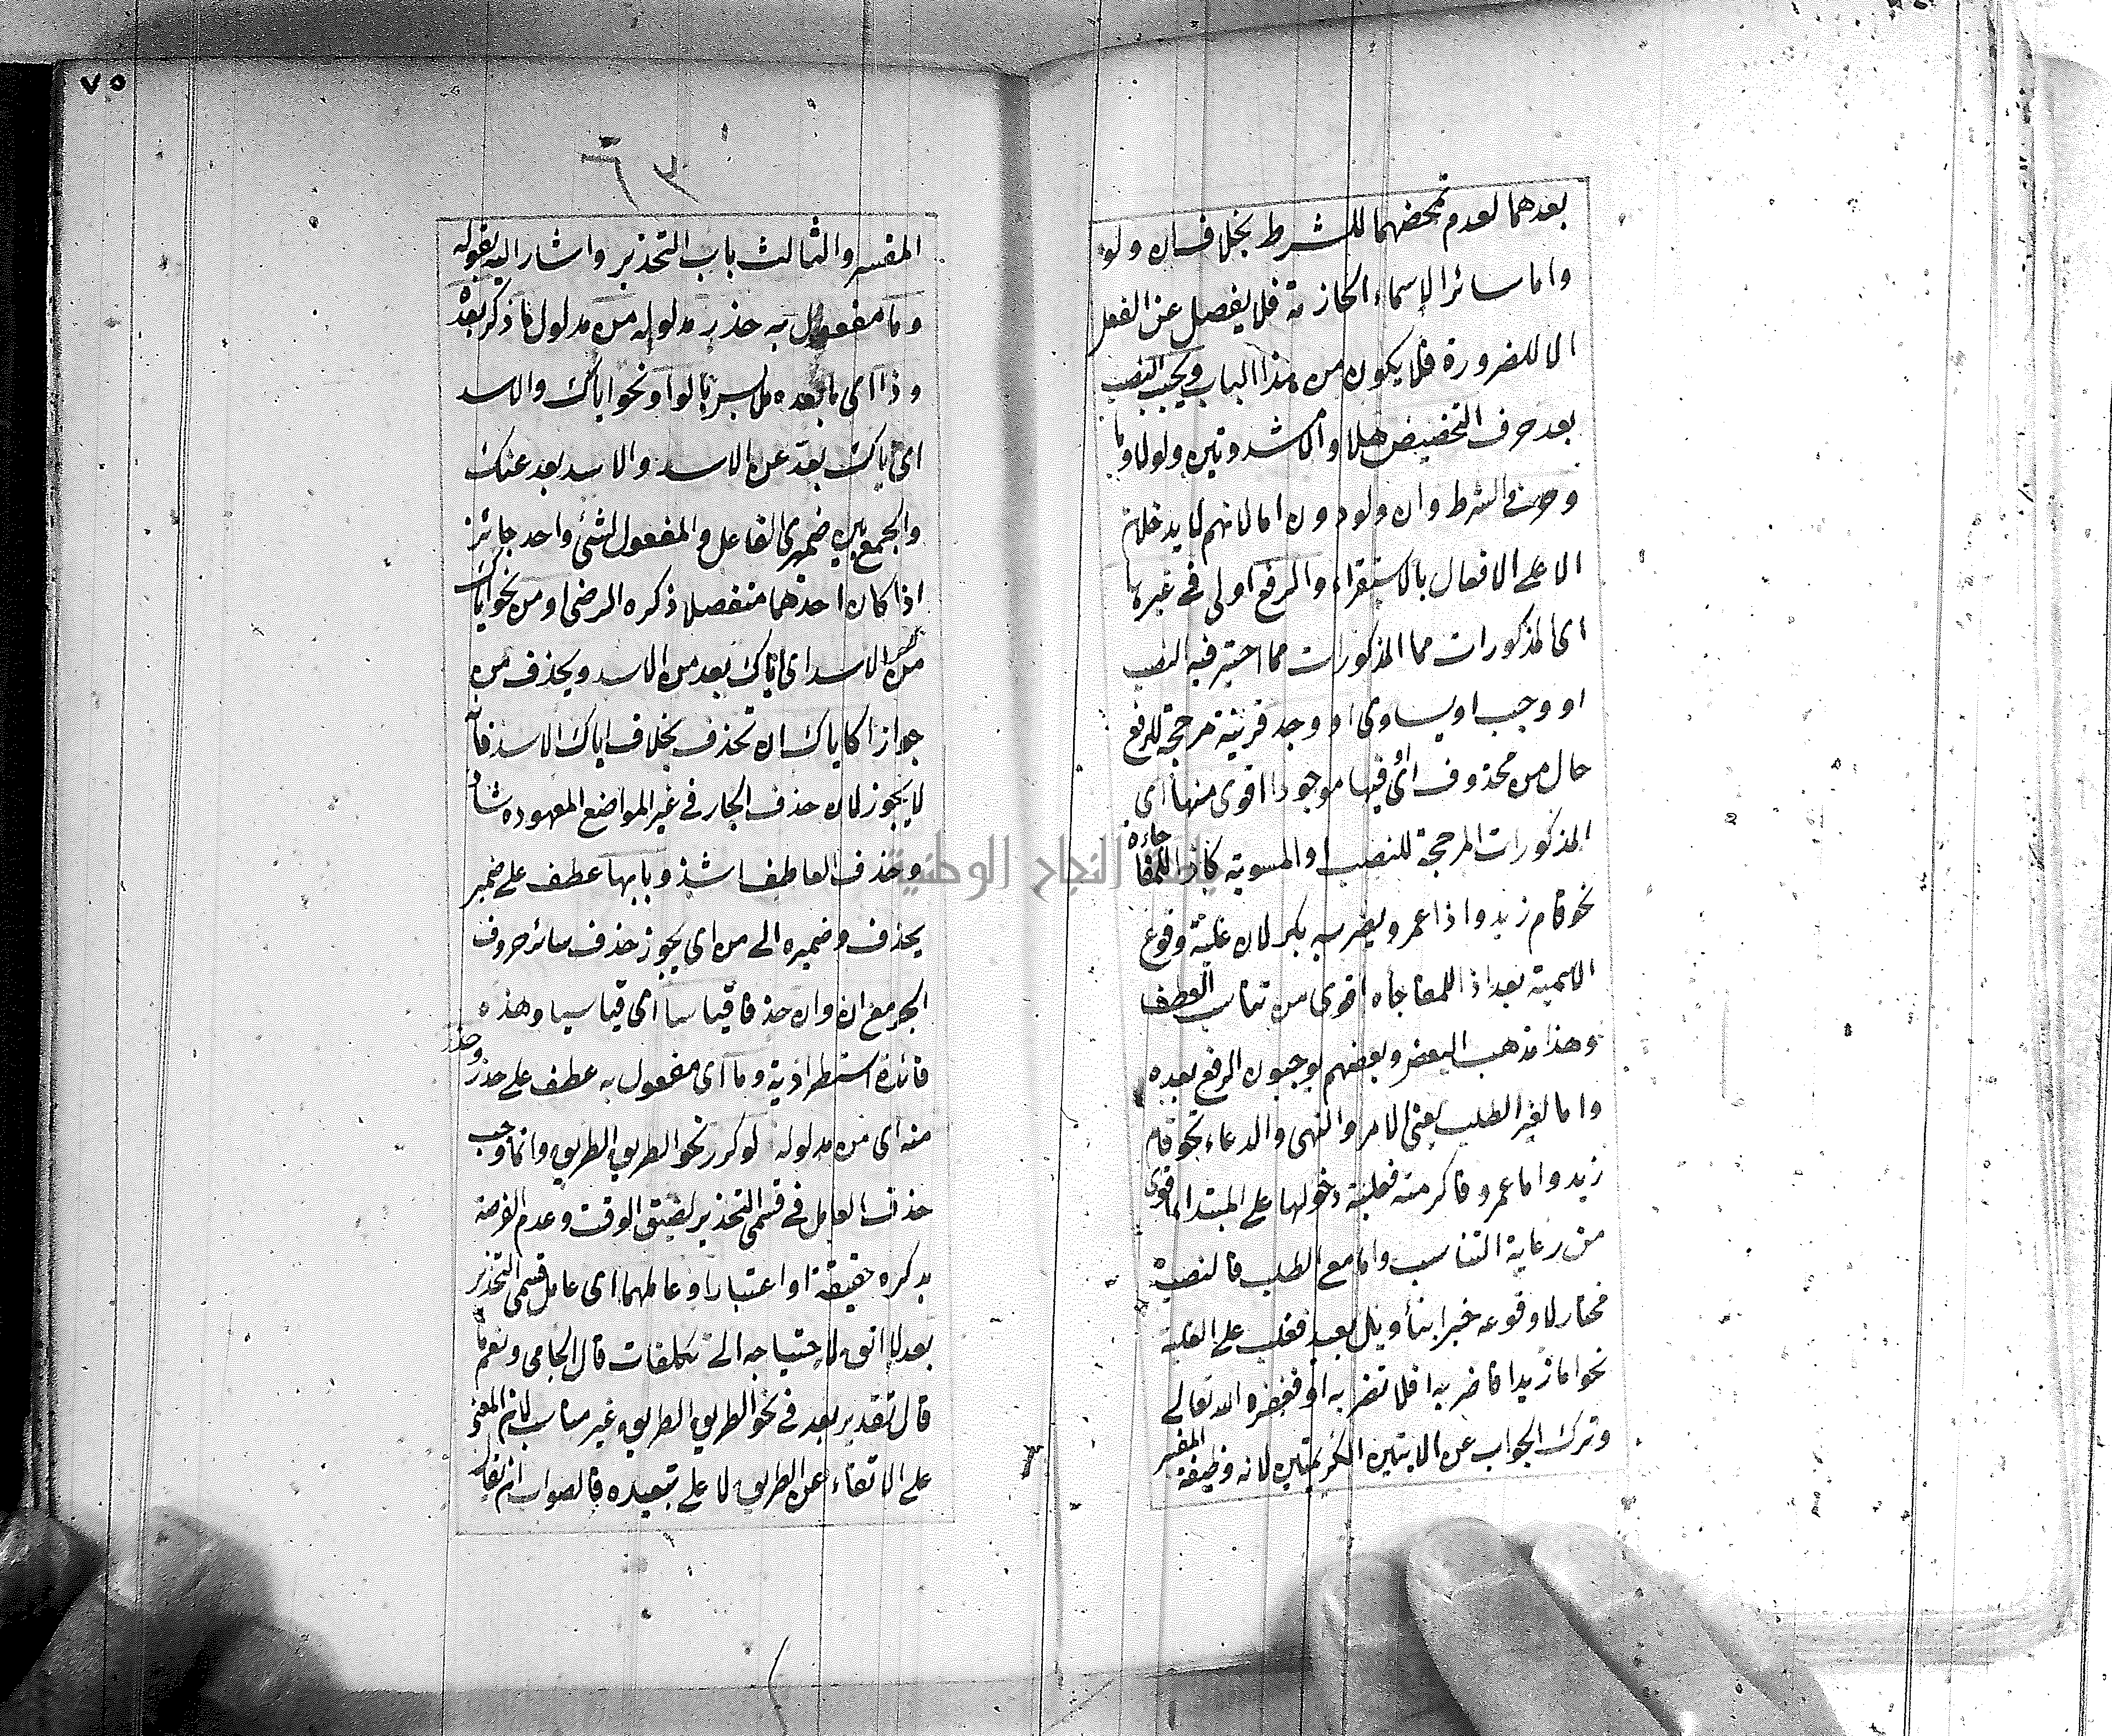 بعدهما لعدم تمحضهما للشرط بخلاف ان ولو
واما سائر الاسماء الجازمة فلا يفصل عن الفعل
الا للضرورة فلا يكون من هذا الباب ويجب النصب
بعد حرف التحضيض هلا والا مشددتين ولولا ولوما
وحرفي الشرط وان ولو دون اما لانهم لا يدخلان
الا على الافعال بالاستقراء والرفع اولى في غيرها
اى المذكورات مما المذكورات مما اختير فيه النصب
او وجب او يساوى او وجد قرينة مرجحة للرفع
حال من محذوف اى فيها موجودا اقوى منها اى
المذكورات المرجحة للنصب او المسوية كاذا للمفاجاءة
نحو قام زيد واذا عمرو يضربه بكر لان غلبة وقوع
الاسمية بعد اذا للمفاجاه اقوى من تناسب العطف
وهذا مذهب البعض وبعضهم يوجبون الرفع بعده
واما لغير الطلب يعنى الامر والنهى والدعاء نحو قام
زيد واما عمرو فاكرمته فغلبة دخولها على المبتداء اقوى
من رعاية التناسب واما مع الطلب فالنصب
مختار لا وقوعه خبرا بتأويل بعيد فغلب على الغلبة
نحو اما زيدا فاضربه افلا تضربه او فغفره الله تعالى
وترك الجواب عن الايتين الكريمتين لانه وظيفة المفسر
٧٥
٦٣
المفسر والثالث باب التحذير واشار اليه بقوله
وما مفعول به حذر مدلوله من مدلول ما ذكر بعده
وذا اى ما بعده ملابس بالواو نحو اياك والاسد
اى اياك بعد عن الاسد والاسد بعد عنك
والجمع بين ضميرى الفاعل والمفعول لشئ واحد جائز
اذا كان احدهما منفصلا ذكره الرضى او من نحو اياك
من الاسد اى اياك بعد من الاسد ويحذف من
جوازا كاياك ان تحذف بخلاف اياك الاسد فانه
لا يجوز لان حذف الجار في غير المواضع المعهوده شاذ
وحذف العاطف اشذ وبابها عطف على ضمير
يحذف وضميره الى من اى يجوز حذف سائر حروف
الجر مع ان وان حذفا قياسا اى قياسيا وهذه
فائدة استطرادية وما اى مفعول به عطف على حذر وحذر
منه اى من مدلوله لو كرر نحو الطريق الطريق وانما وجب
حذف العامل في قسمى التحذير لضيق الوقت وعدم الفرصة
بذكره حقيقة او اعتبارا وعاملهما اى عامل قسمى التحذير
بعد لا اتق لاحتياجه الى تكلفات قال الجامى ونعم ما
قال تقدير بعد في نحو الطريق الطريق غير مناسب لان المعنى
على الاتقاء عن الطريق لا على تبعيده فالصواب ان يقال